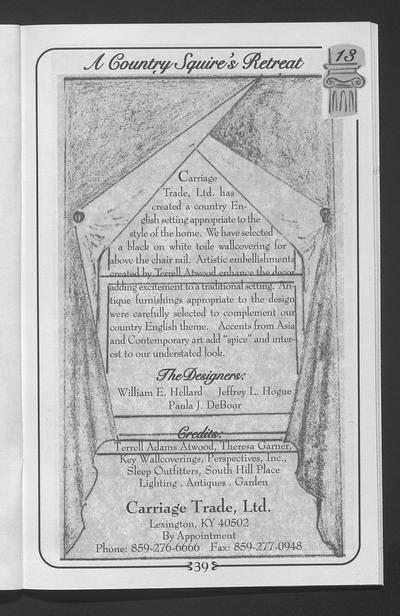 A Country Squire's Retreat
13
Carriage
Trade, Ltd. has
created a country En-
glish setting appropriate to the
style of the home. We have selected
a black on white toile wallcovering for
above the chair rail. Artistic embellishments
created by Terrell Atwood enhance the decor
adding excitement to a traditional setting. An-
tique furnishings appropriate to the design
were carefully selected to complement our
country English theme. Accents from Asia
and Contemporary art add "spice" and inter-
est to our understated look.
The Designers:
William E. Hellard Jeffrey L. Hogue
Paula J. DeBoor
Credits:
Terrell Adams Atwood, Theresa Garner,
Key Wallcoverings, Perspectives, Inc.,
Sleep Outfitters, South Hill Place
Lighting . Antiques . Garden
Carriage Trade, Ltd.
Lexington, KY 40502
By Appointment
Phone: 859-276-6666 Fax: 859-277-0948
39